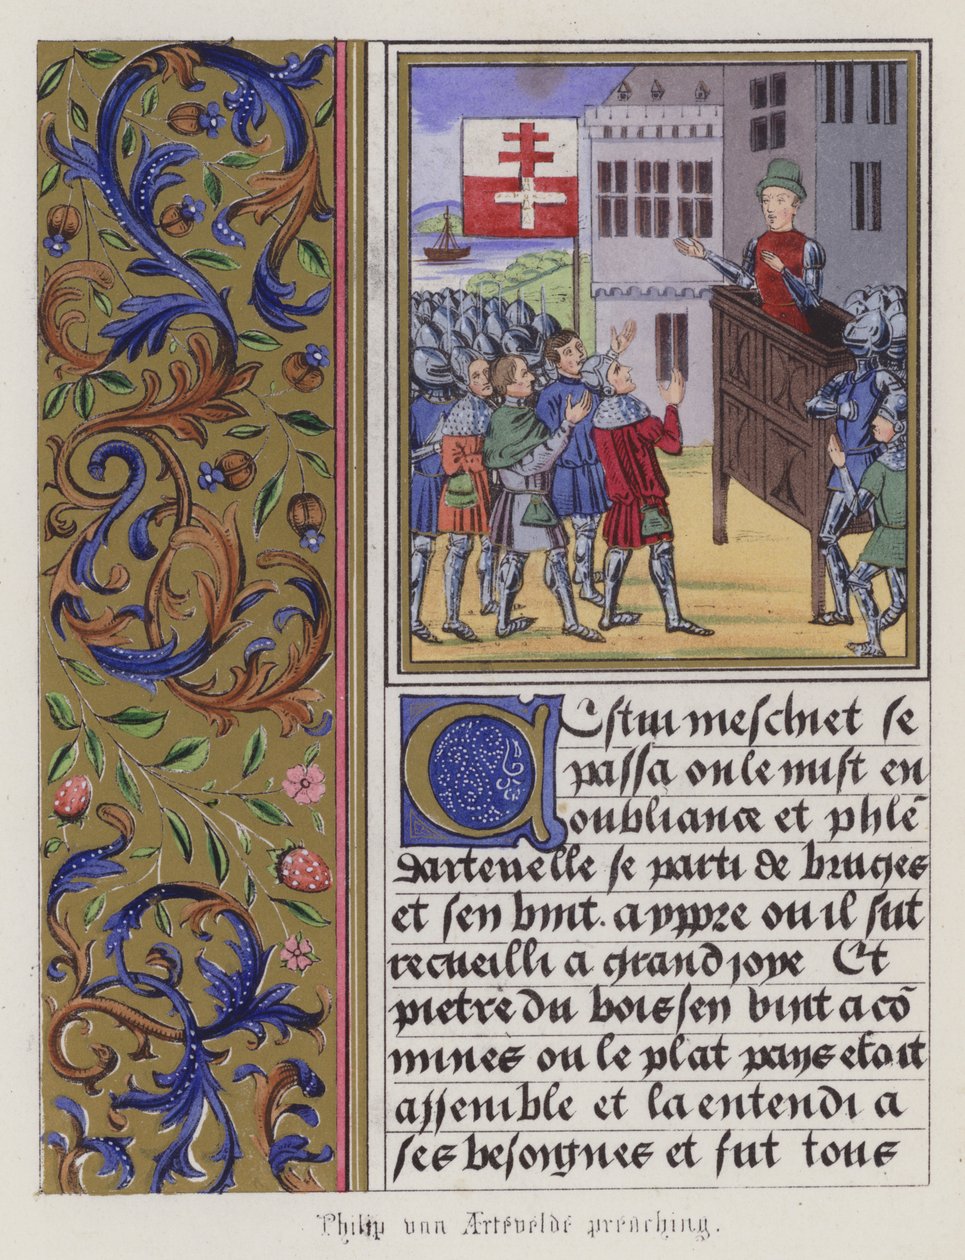 Cestui meschiet se
passa on le mist en
oubliance et phlē
dartevelle se parti de bruges
et sen vint a yppre ou il fut
recueilli a grand joye Et
pietre du boissen vint a cō
mines ou le plat pays estoit
assemble et la entendi a
ses besongnes et fut tous
Philip van Artevelde preaching.